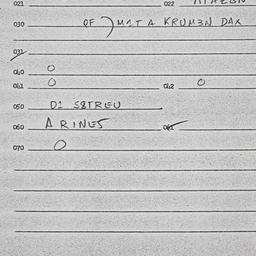 021 022
030 OF ) M1TA KRUM3N DAX
031
040 O
041 O 042 O
050 D1 S8TREU
060 A RINES 065
070 O